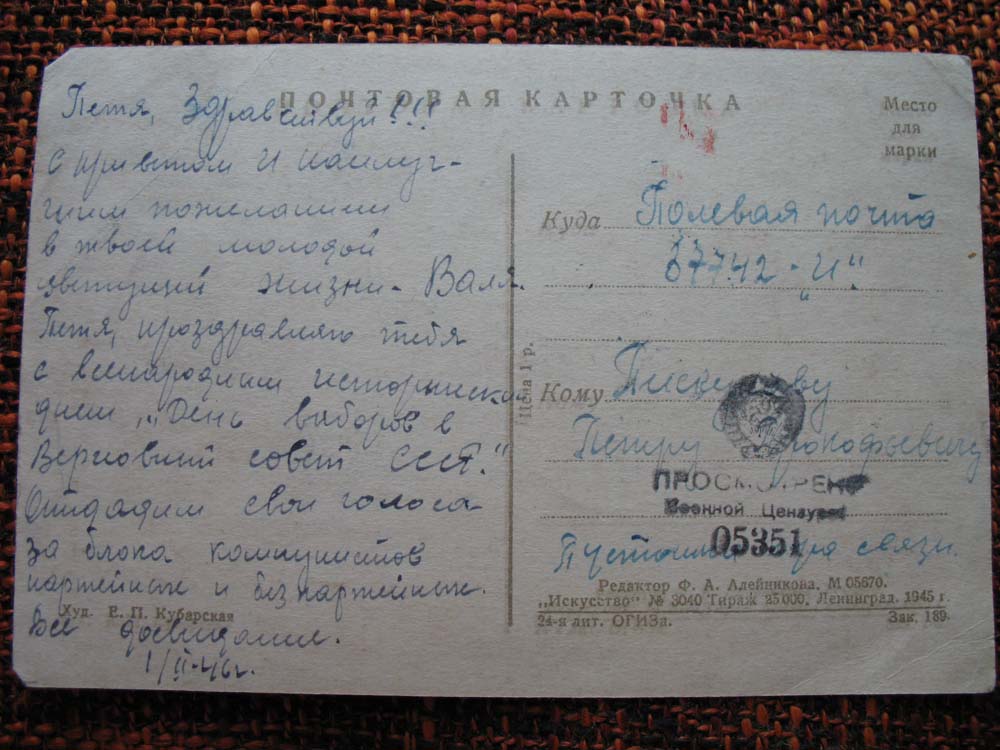 ПОЧТОВАЯ КАРТОЧКА
Место
для
марки
Петя, Здравствуй!!!
С приветом и наилуч-
шим пожеланием
в твоей молодой
цветущей жизни - Валя.
Петя, проздравляю тебя
с всенародним историческим
днем „День выборов в
Верховный совет СССР."
Отдадим свои голоса
за блока коммунистов
партейных и безпартейных.
Все досвидание.
1/II-46г.
Худ. Е. П. Кубарская
Цена 1 р.
Куда Полевая почта
37742 - „И"
Кому
Петру Прокофьевичу
связи.
ПРОСМОТРЕНО
Военной Цензурой
05351
Редактор Ф. А. Алейникова. М 05670.
„Искусство" № 3040 Тираж 25000. Ленинград. 1945 г.
24-я лит. ОГИЗа. Зак. 189.